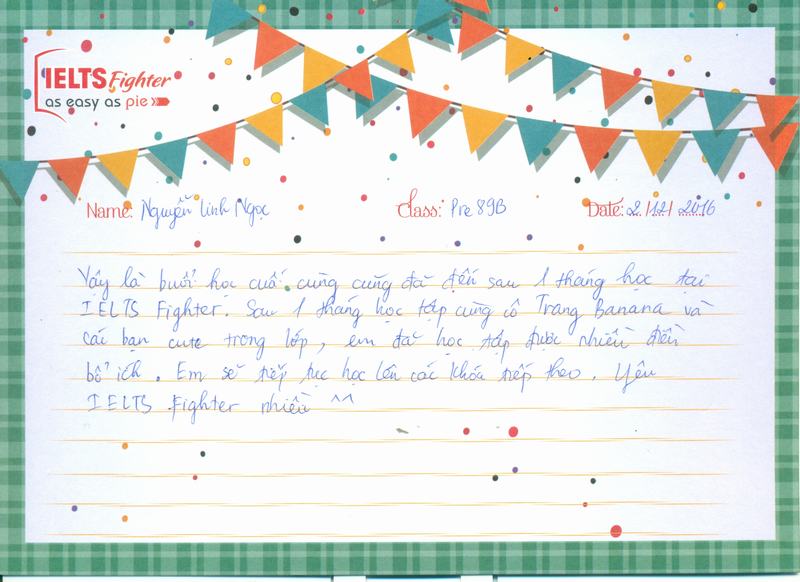 IELTS Fighter
as easy as pie
Name: Nguyễn Linh Ngọc Class: Pre 89B Date: 2/12/2016
Vậy là buổi học cuối cùng cũng đã đến sau 1 tháng học tại
IELTS Fighter. Sau 1 tháng học tập cùng cô Trang Banana và
các bạn cute trong lớp, em đã học tập được nhiều điều
bổ ích. Em sẽ tiếp tục học lên các khóa tiếp theo. Yêu
IELTS Fighter nhiều ^^